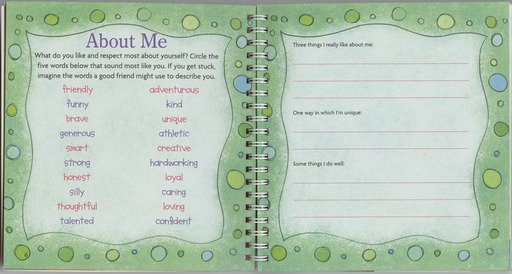 About Me
What do you like and respect most about yourself? Circle the
five words below that sound most like you. If you get stuck,
imagine the words a good friend might use to describe you.
friendly adventurous
funny kind
brave unique
generous athletic
smart creative
strong hardworking
honest loyal
silly caring
thoughtful loving
talented confident
Three things I really like about me:
One way in which I'm unique:
Some things I do well: